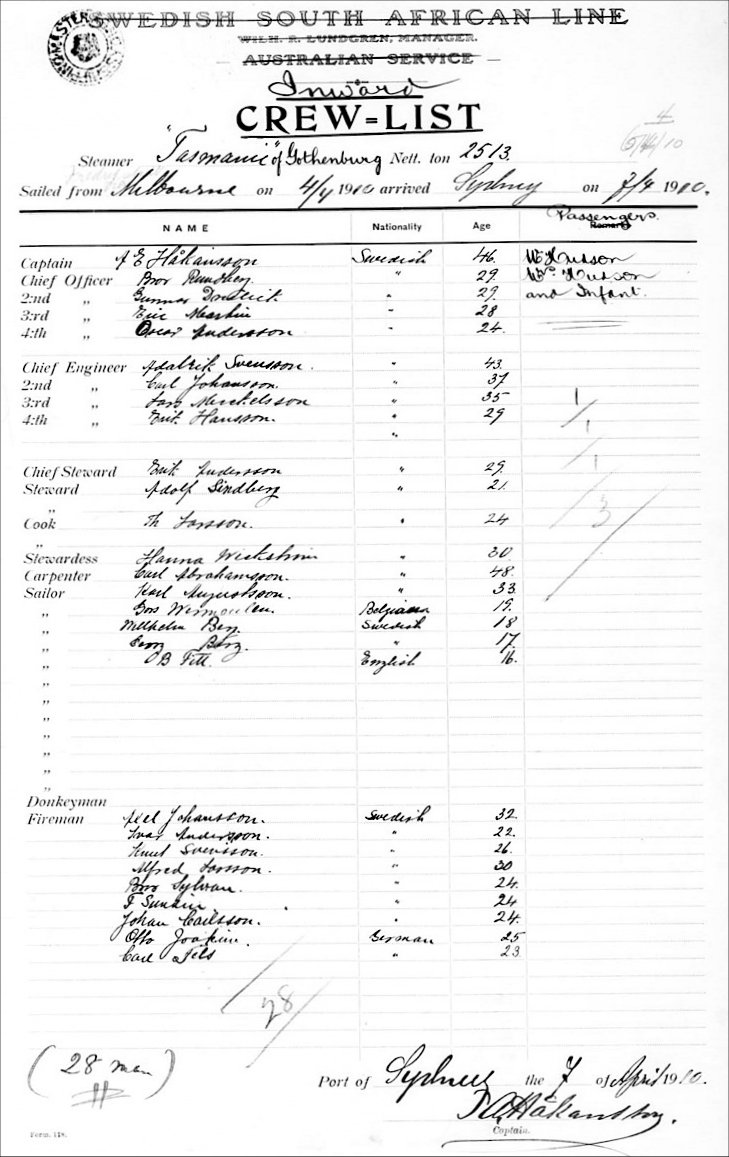 SWEDISH SOUTH AFRICAN LINE
WILH. R. LUNDGREN, MANAGER.
— AUSTRALIAN SERVICE —
Inward
CREW=LIST
Steamer "Tasmanic" of Gothenburg Nett. ton 2513.
Sailed from Melbourne on 4/4 1910 arrived Sydney on 7/4 1910.
NAME Nationality Age Passengers Remarks
Captain A E Håkansson Swedish 46. Mr Hudson
Chief Officer Bror Rundberg " 29 Mrs Hudson
2:nd " Gunnar " 29. and Infant.
3:rd " Eric Martin " 28
4:th " Oscar Andersson " 24.
Chief Engineer Svensson. " 43.
2:nd " Carl Johansson. " 37
3:rd " Lars " 35 1
4:th " Erik Hansson. " 29 1
"
1
Chief Steward Erik Andersson " 29.
Steward Adolf Lindberg " 21.
"
Cook Th Larsson. " 24 3
"
Stewardess Hanna " 30
Carpenter Carl Abrahamsson. " 48.
Sailor Karl Augustsson. " 33.
" Belgian 19.
" Wilhelm Berg. Swedish 18
" Berg. " 17.
" OB Fitt. English 16.
"
"
"
"
"
"
"
Donkeyman
Fireman Axel Johansson. Swedish 32
Ivar Andersson. " 22.
Knut Svensson. " 26.
Alfred Larsson. " 30
Bror Sylvan. " 24.
F Sundin " 24
Johan Carlsson. " 24.
Otto Joakim. German 25
Carl Fels " 23
28
(28 men)
Port of Sydney the 7 of April 1910.
Håkansson.
Captain.
Form. 118.